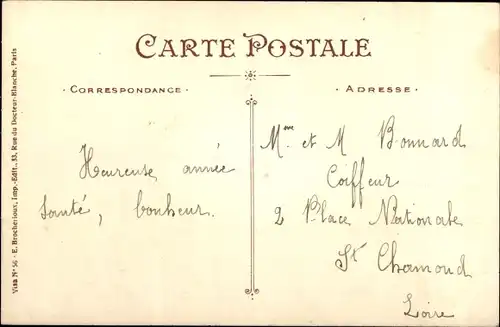 CARTE POSTALE
CORRESPONDANCE
ADRESSE
Heureuse année
santé, bonheur.
Mme et M Bonnard
Coiffeur
2 Place Nationale
St Chamond
Loire
Visa N° 56 - E. Brocherioux, Imp.-Édit., 33, Rue du Docteur-Blanche, Paris